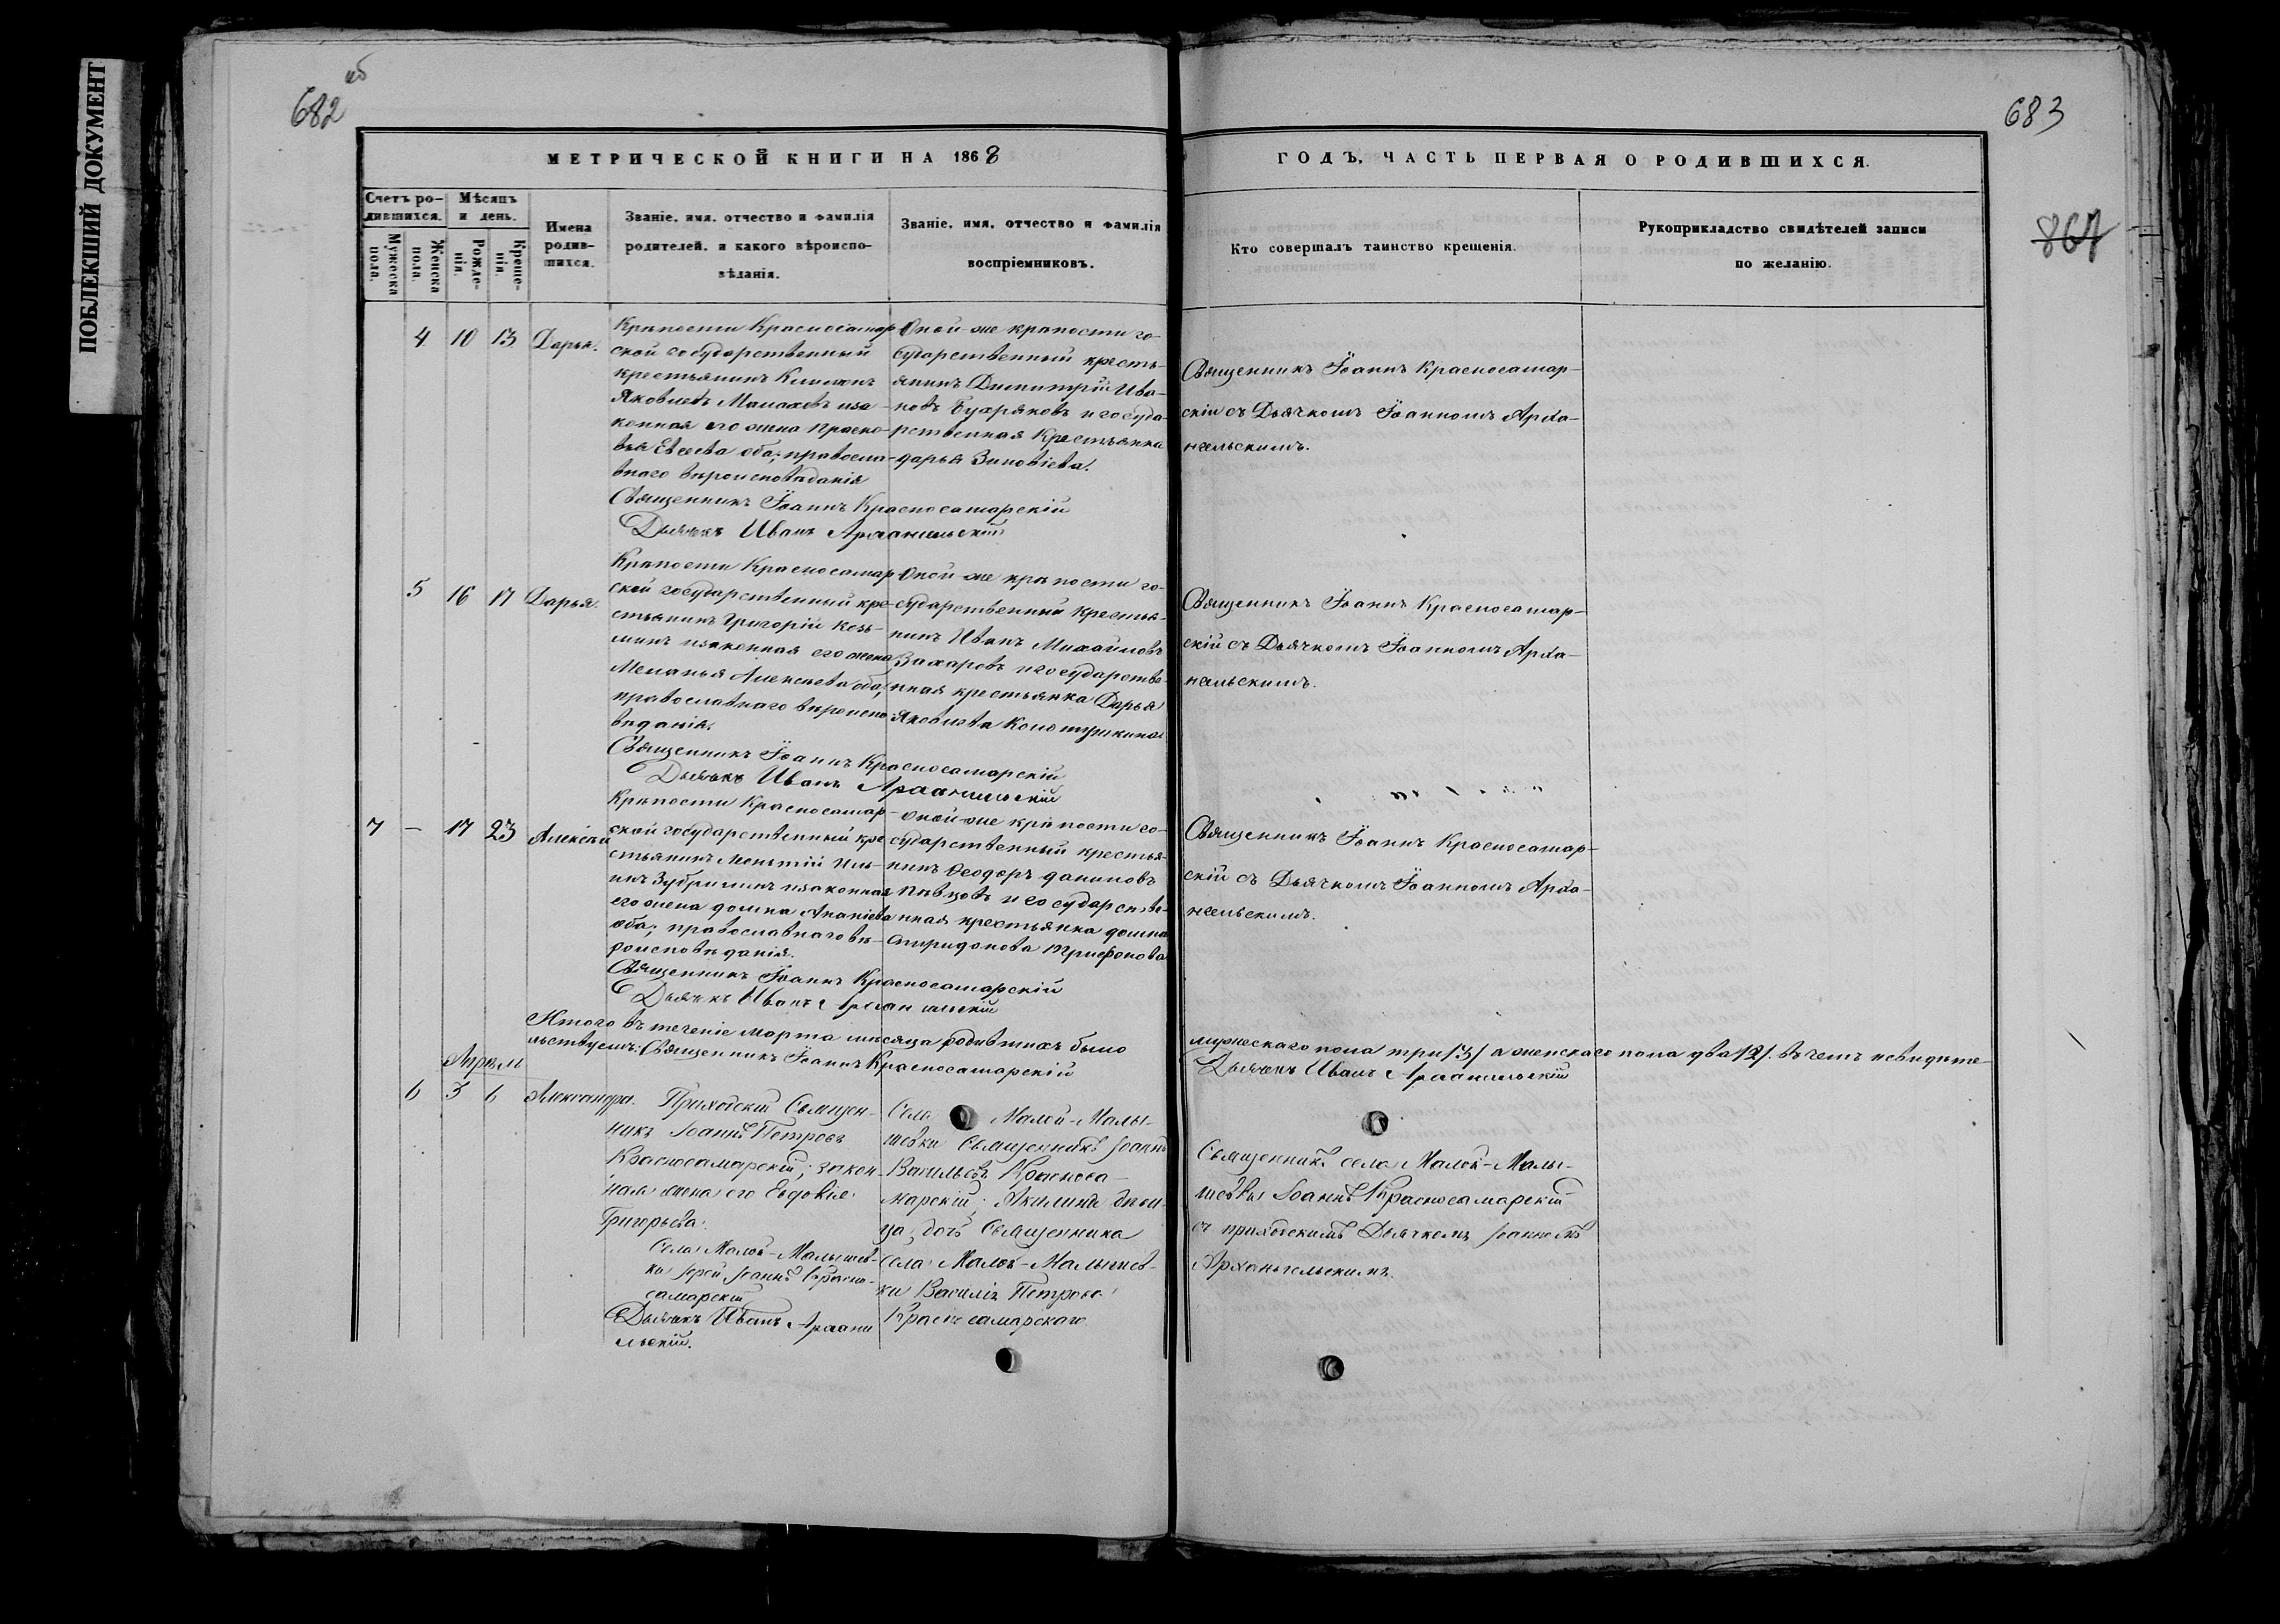 ПОБЛЕКШИЙ ДОКУМЕНТ
682 об
683
867
МЕТРИЧЕСКОЙ КНИГИ НА 1868
ГОДЪ, ЧАСТЬ ПЕРВАЯ О РОДИВШИХСЯ.
Счетъ ро-
дившихся.
Мужеска
пола.
Женска
пола.
Мѣсяцъ
и день.
Рожде-
нія.
Креще-
нія.
Имена
родив-
шихся.
Званіе, имя, отчество и фамилія
родителей, и какого вѣроиспо-
вѣданія.
Званіе, имя, отчество и фамилія
воспріемниковъ.
Кто совершалъ таинство крещенія.
Рукоприкладство свидѣтелей записи
по желанію.
4 10 13 Дарья.
Крѣпости Красносамар
ской государственный
крестьянинъ
Яковлевъ иза-
конная его жена Праско-
вья Евсеева оба; правосла-
внаго вѣроисповѣданія
Священникъ Іоаннъ Красносамарскій
Дьячекъ Иванъ Архангельскій
Оной-же крѣпости го-
сударственный кресть-
янинъ Димитрій Ива-
новъ Бухряковъ и госуда-
рственная Крестьянка
дарья Зиновіева.
Священникъ Іоаннъ Красносамар-
скій съ Дьячкомъ Іоанномъ Арха-
нгельскимъ.
5 16 17 Дарья.
Крѣпости Красносамар
ской государственный кре-
стьянинъ Григорій Козь-
минъ изаконная его жена
Меланья Алексеева оба;
православнаго вѣроиспо
вѣданія.
Священникъ Іоаннъ Красносамарскій
Дьячекъ Иванъ Архангельскій
Оной-же крѣпости го-
сударственный Крестья-
нинъ Иванъ Михайловъ
Захаровъ и государстве-
нная крестьянка Дарья
Яковлева Колотушкина
Священникъ Іоаннъ Красносамар-
скій съ Дьячкомъ Іоанномъ Арха-
нгельскимъ.
7 — 17 23 Алексѣй
Крѣпости Красносамар-
ской государственный кре
стьянинъ Ме Иль-
инъ изаконная
его жена домна Ананіева
оба; православнаго вѣ-
роисповѣданія.
Священникъ Іоаннъ Красносамарскій
Дьячекъ Иванъ Архангельскій
оной-же крѣпости го-
сударственный крестья-
нинъ Ѳеодоръ даниловъ
Пѣвцовъ и государстве-
нная крестьянка домна
Спиридонова Трифонова
Священникъ Іоаннъ Красносамар-
скій съ Дьячкомъ Іоанномъ Арха-
нгельскимъ.
Итого въ теченіе марта мѣсяца родившихъ было мужескаго пола три /3/ а женскаго пола два /2/. въ чемъ и свидѣте-
льствуемъ: Священникъ Іоаннъ Красносамарскій Дьячекъ Иванъ Архангельскій
Апрѣль
6 3 6 Александра.
Приходскій Священ-
никъ Іоаннъ Петровъ
Красносамарскій; закон-
ная жена его Евдокія
Григорьева.
Села Малой-Малышев-
ки Іерей Іоаннъ Красно-
самарскій
Дьячекъ Иванъ Архангѣ
льскій.
Села Малой-Малы-
шевки Священникъ Іоаннъ
Васильевъ Красноса-
марскій; Акилина дѣви-
ца, дочь Священника
села Малой-Малышев-
ки Василія Петрова
Красносамарскаго
Священникъ села Малой-Малы-
шевки Іоаннъ Красносамарскій
съ приходскимъ Дьячкомъ Іоанномъ
Архангельскимъ.